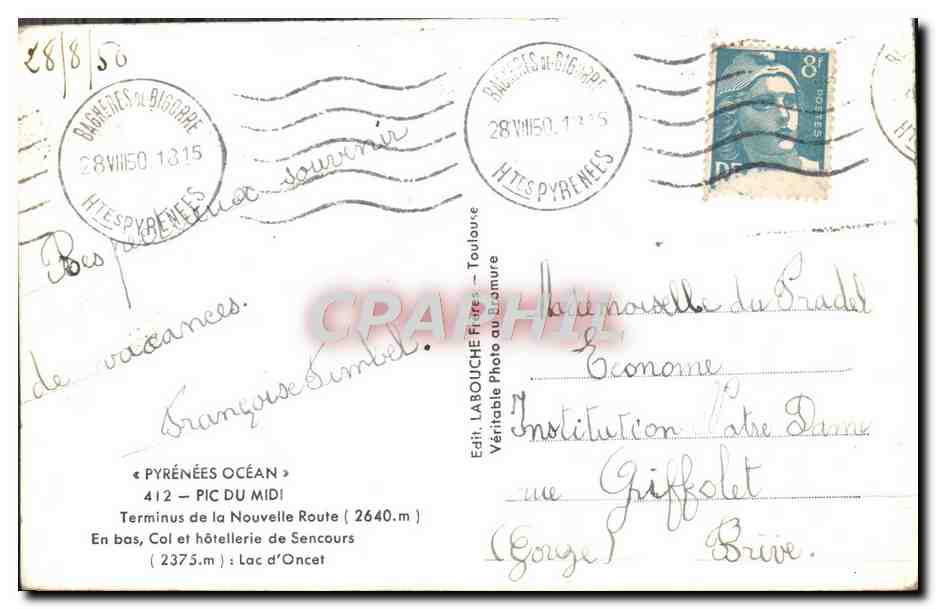 28/8/50
BAGNÈRES DE BIGORRE
28 VIII 50. 18 15
HTES PYRENEES
BAGNÈRES DE BIGORRE
28 VIII 50. 18 15
HTES PYRENEES
8f
POSTES
Respectueux souvenir
de vacances.
Françoise
« PYRÉNÉES OCÉAN »
412 – PIC DU MIDI
Terminus de la Nouvelle Route ( 2640.m )
En bas, Col et hôtellerie de Sencours
( 2375.m ) : Lac d'Oncet
Edit. LABOUCHE Frères – Toulouse
Véritable Photo au Bromure
CPARHIL
Mademoiselle du Pradel
Econome
Institution Notre Dame
rue Griffolet
Brive.